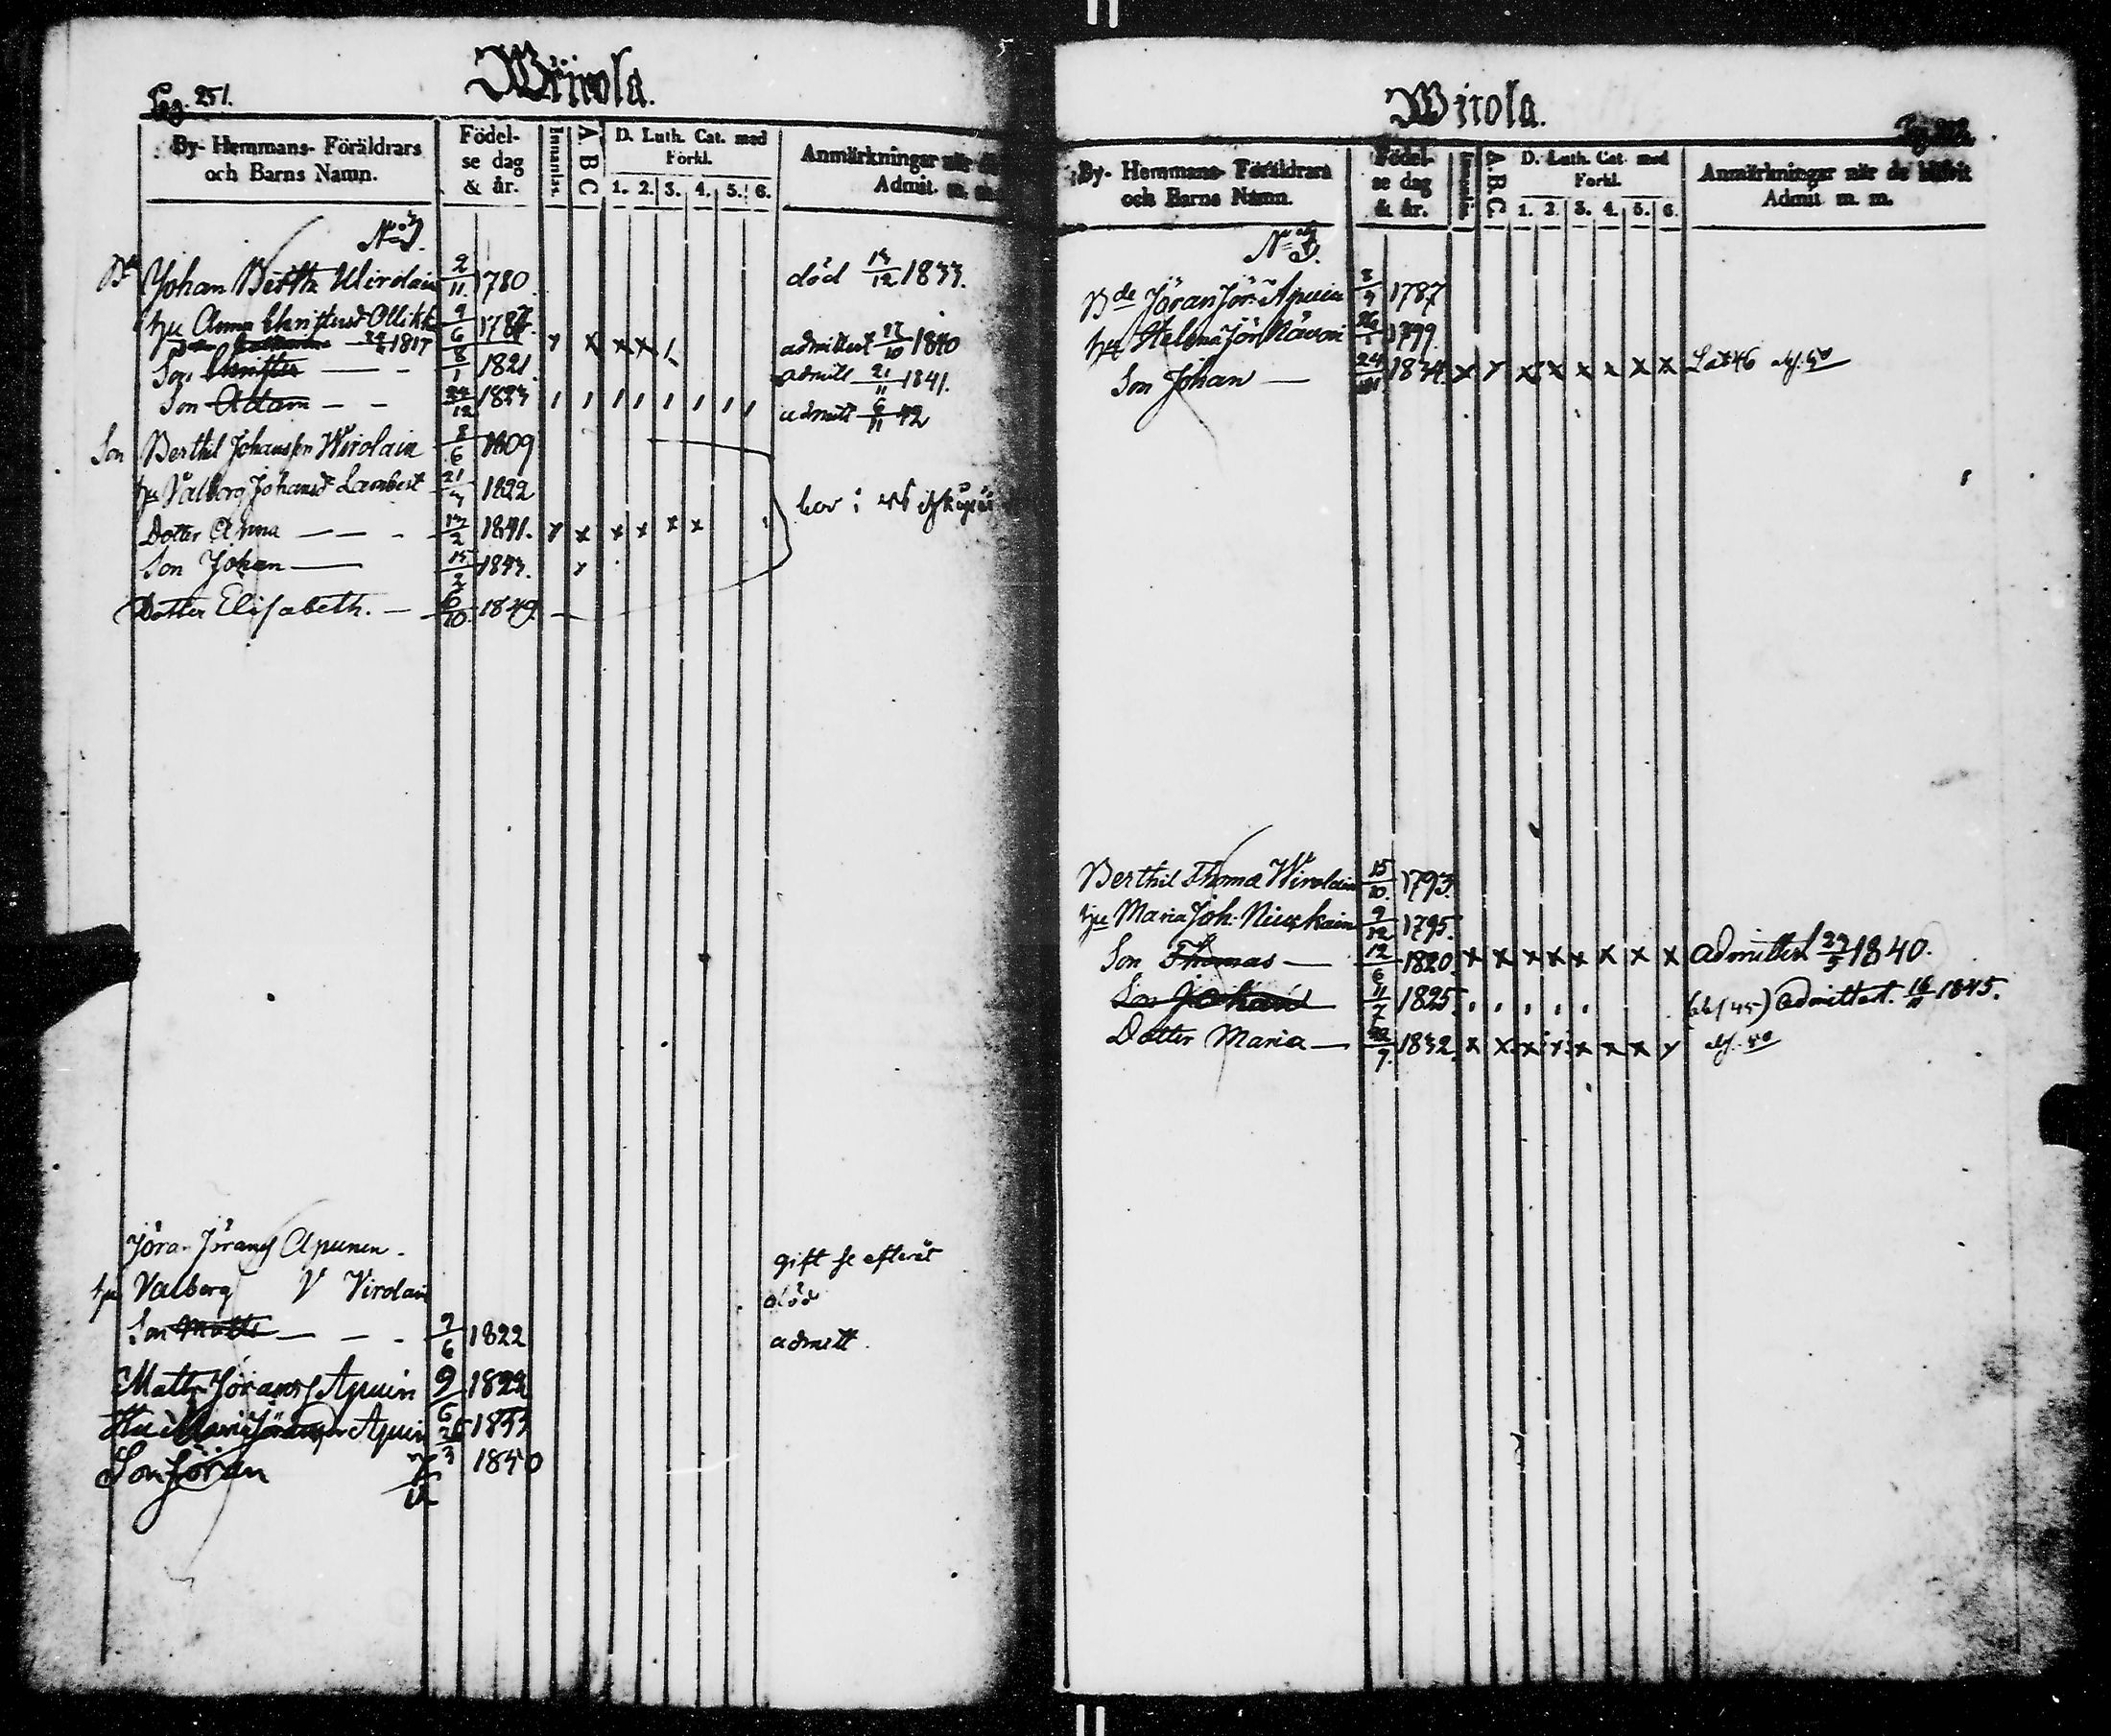 Pag. 251.
Wirola.
By- Hemmans- Föräldrars och Barns Namn.
Födel-se dag & år.
Innanläs.
A B C
D. Luth. Cat. med Förkl.
1. 2. 3. 4. 5. 6.
Anmärkningar när de
Admit. m. m.
No 3.
Johan Berth. Wirolain 2/11 1780. död 13/12 1833.
hu Anna Christersd. Ollikn 9/6 1787.
1817
Son Christer — - 8/1 1821. x x x x admittert 27/10 1840
admitt 21/11 1841.
Son Adam - - 24/12 1823 admitt 6/11 42
Son Berthil Johansson Wirolain 8/6 1809
hu Valborg Johansd. Lambert 21/7 1822
bor i
Dotter Anna — — - 17/2 1841. x x x x x x
Son Johan — 15/2 1843. x
Dotter Elisabeth. — 6/10 1849.
Jöran Jörans Apunen. gift se efteråt
hu Valborg V Virolain död
Son Matts — — - 9/6 1822 admitt.
Matts Jörans Apuin 9/6 1822
Hu Maria Apuin 26/3 1833
Son Jöran 1850
Wirola.
By- Hemmans- Föräldrars och Barns Namn.
Födel-se dag & år.
Innanläs.
A. B C
D. Luth. Cat. med Förkl.
1. 2. 3. 4. 5. 6.
Anmärkningar när de blifvit
Admit m. m.
No 3.
Bde Jöran Jör: Apuin 8/9 1787
hu Helena Jör: 1799.
Son Johan — 1834. x x x x x x x x
Berthil Thoma Wirolain 15/10. 1793.
hu Maria Joh. 9/12 1795.
Son Thomas — 12/6 1820. x x x x x x x x admittert 1840.
Son Johan 11/7 1825. admittert. 16/11 1845.
Dotter Maria — 22/9. 1832. x x x x x x x x